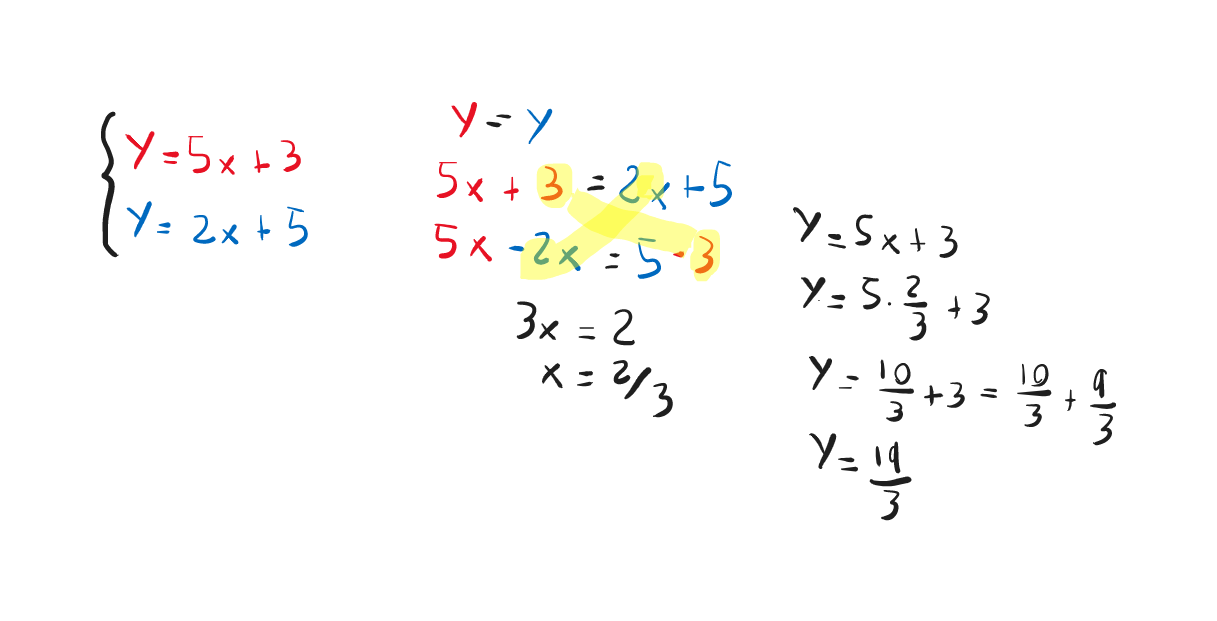 y = 5x + 3
y = 2x + 5
y = y
5x + 3 = 2x + 5
5x - 2x = 5 - 3
3x = 2
x = 2/3
y = 5x + 3
y = 5 · 2/3 + 3
y = 10/3 + 3 = 10/3 + 9/3
y = 19/3